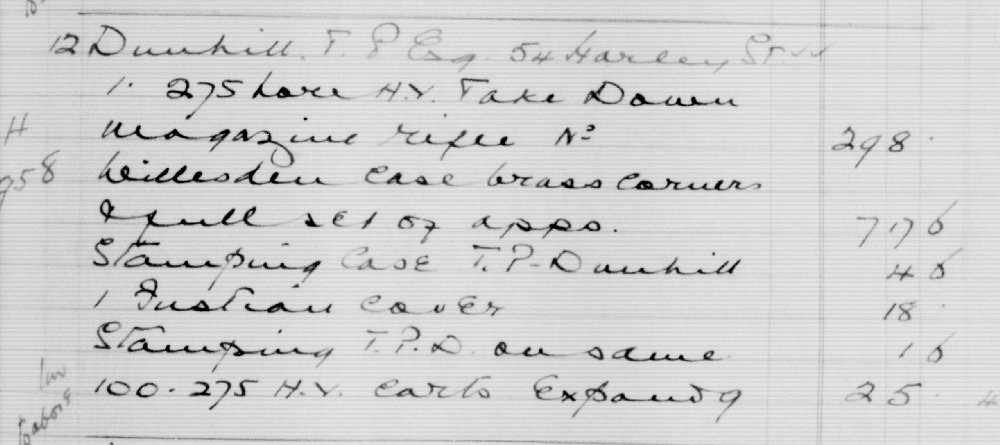 12 Dunhill. T. P Esq. 54 Harley St. W
1. 275 bore H.V. Take Down
H Magazine rifle No 298.
958 Willesden case brass corners
& full set of apps. 7 17 6
Stamping Case T.P. Dunhill 4 6
1 Fustian cover 18.
Stamping T.P.D. on same 1 6
100 .275 H.V. carts Expandg 25. 4
above